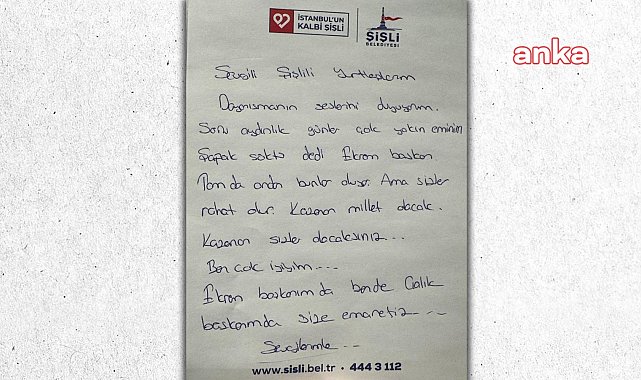 İSTANBUL'UN
KALBİ ŞİŞLİ
ŞİŞLİ
BELEDİYESİ
anka
Sevgili Şişlili Yurttaşlarım
Dayanışmanın seslerini duyuyorum.
Sonu aydınlık günler çok yakın eminim
Şafak söktü dedi Ekrem başkan
Tam da ondan bunlar oluyor. Ama sizler
rahat olun. Kazanan millet olacak.
Kazanan sizler olacaksınız...
Ben çok iyiyim...
Ekrem başkanım da bende Çalık
başkanımda size emanetiz...
Sevgilerimle...
www.sisli.bel.tr • 444 3 112